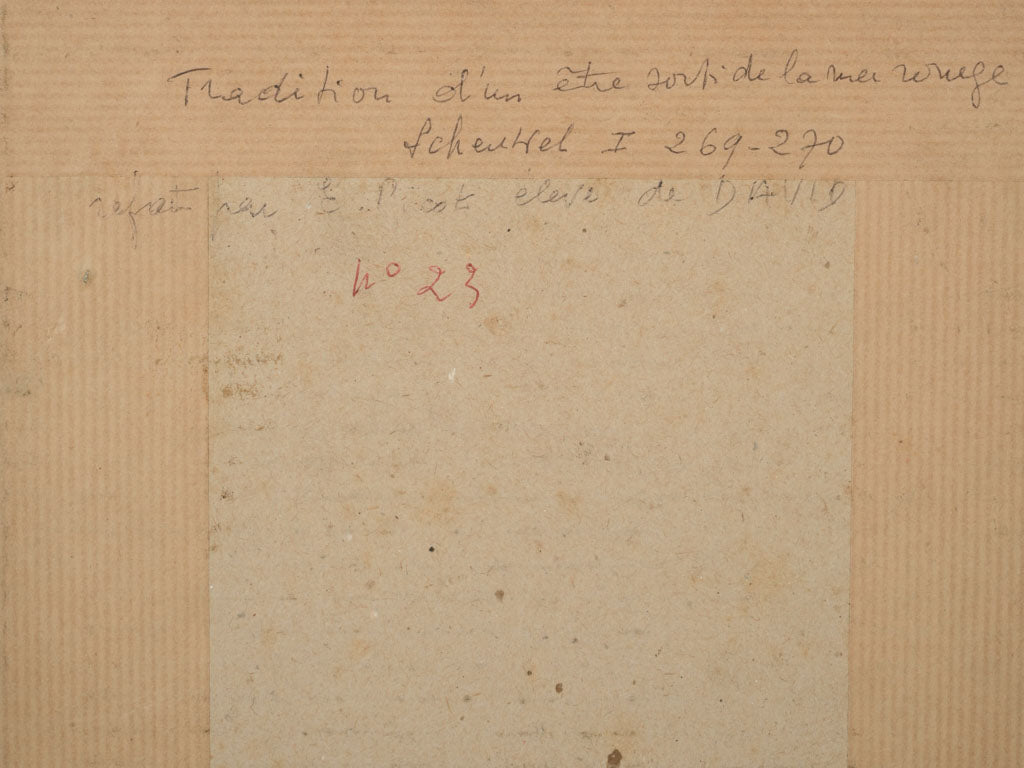 Tradition d'un être sorti de la mer rouge
Scheuvel I 269-270
refait par E. Picot élève de DAVID
n° 23